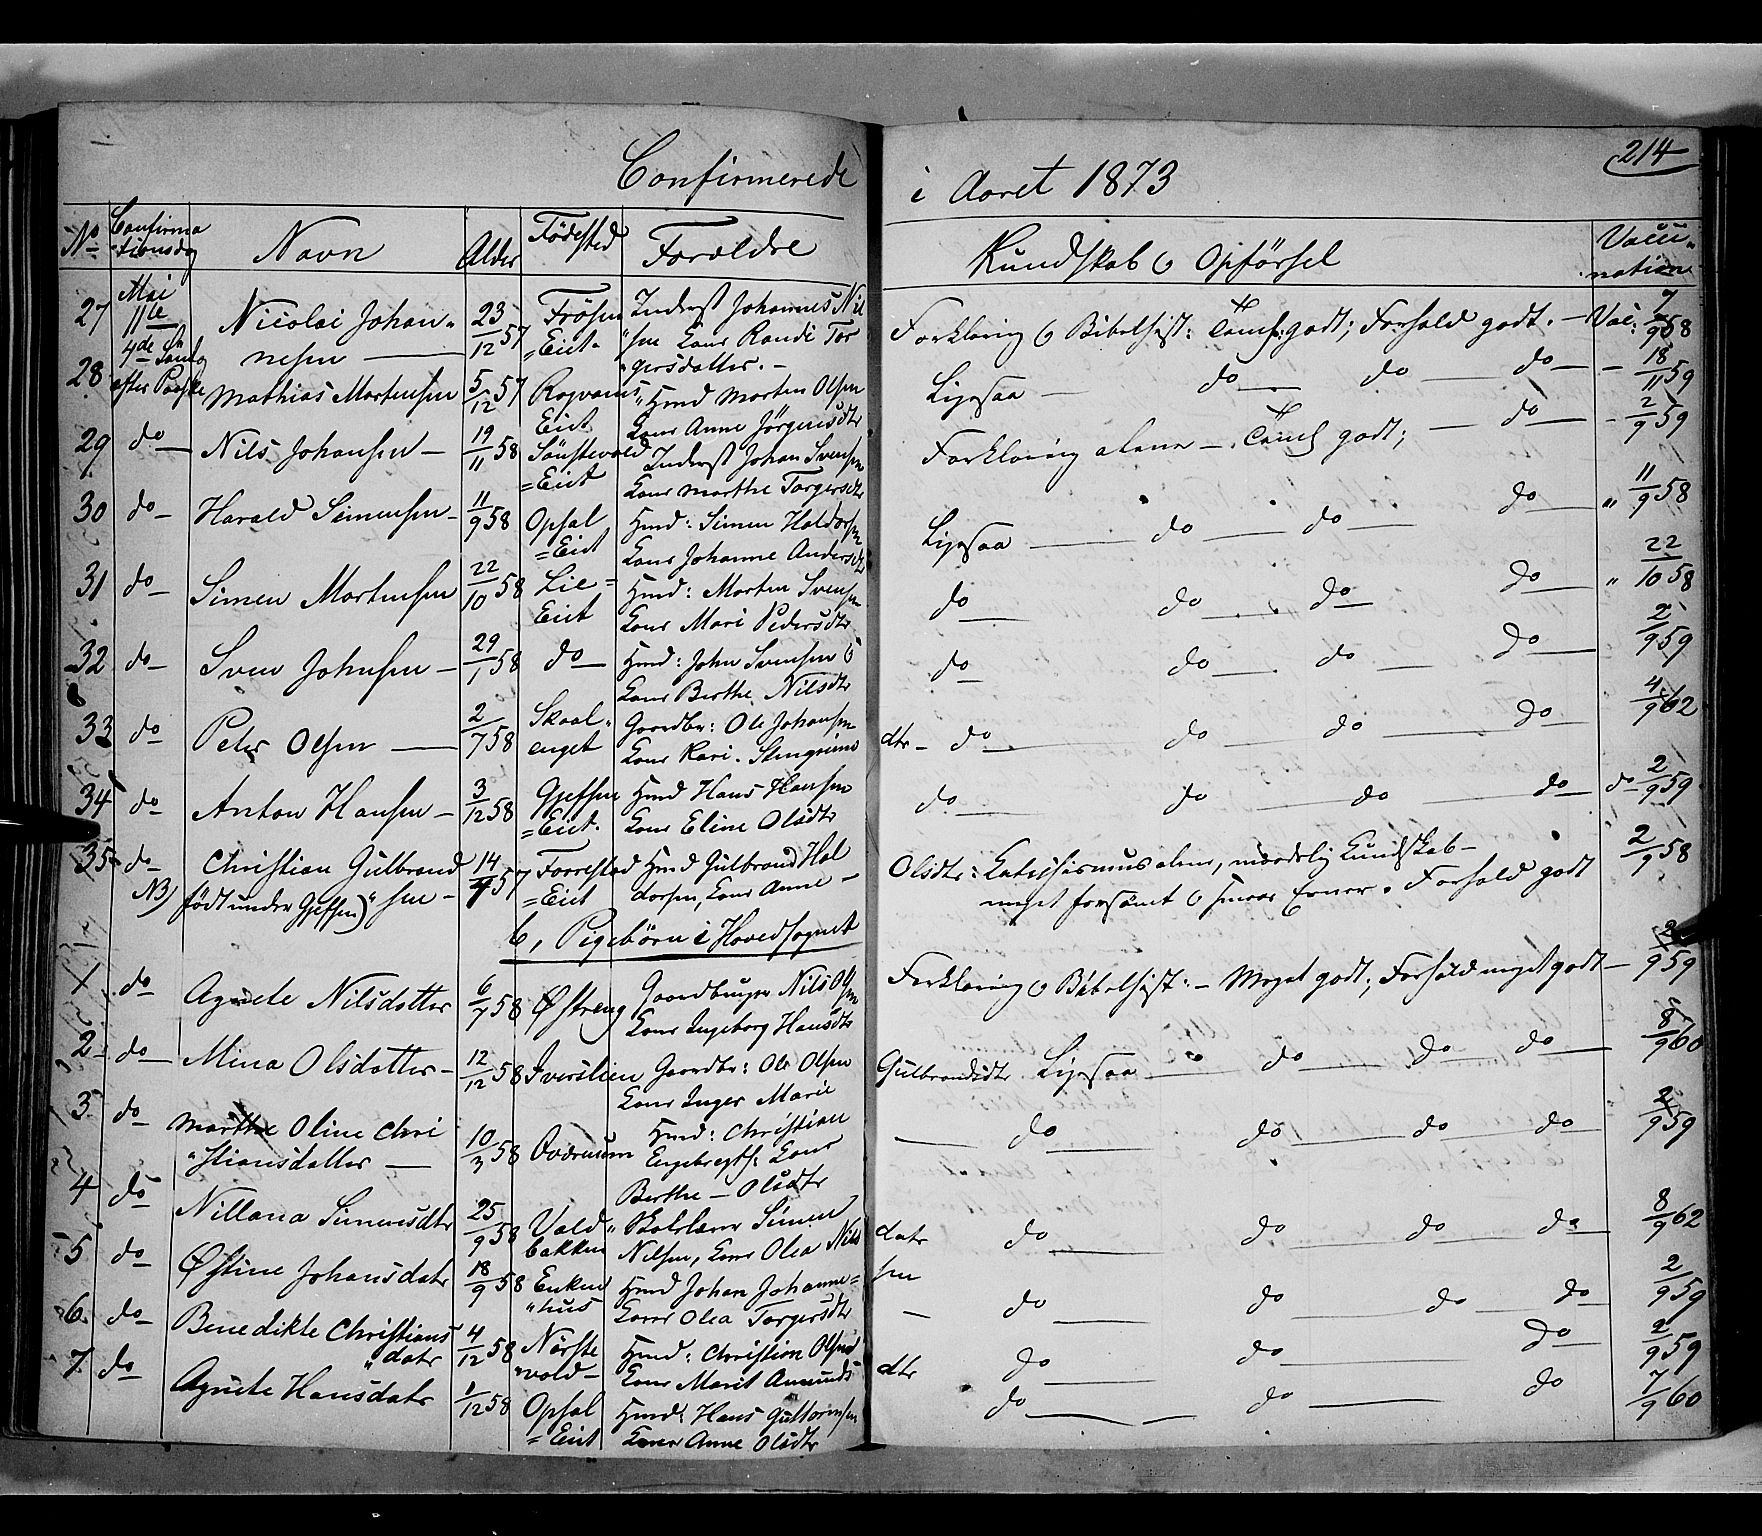 Confirmerede i Aaret 1873
214
No Confirmationsdag Navn Alder Födested Forældre Kundskab & Opförsel Vaccination
27 Mai 11te 4de Sönd. efter Paaske Nicolai Johannesen 23/12 57 Fröhen Eiet Inderst Johannes Nilsen Kone Randi Torgersdatter Forklaring & Bibelhist: Taml: godt; Forhold godt. Vac: 7/9 58
28 Mathias Mortensen 5/12 57 Rognaas Eiet Hmd Morten Olsen Kone Anne Jörgensdtr Ligesaa do do do 18/11 59
29 do Nils Johansen 19/11 58 Sönstevold Eiet Inderst Johan Svensen Kone Marthe Torgersdtr Forklaring alene Taml godt; do 2/9 59
30 do Harald Simensen 11/9 58 Opsal Eiet Hmd: Simen Haldorsen Kone Johanne Andersdtr Ligesaa do do do " 11/9 58
31 do Simen Mortensen 22/10 58 Lie Eiet Hmd: Morten Svensen Kone Mari Pedersdtr do do do do " 22/10 58
32 do Sven Johnsen 29/1 58 do Hmd: John Svensen & Kone Berthe Nilsdtr do do do do 2/9 59
33 do Peter Olsen 2/7 58 Skoalenget Gaardbr: Ole Johansen Kone Kari Stengrimsdtr do do do do 4/9 62
34 do Anton Hansen 3/12 58 Gjefsen Eiet Hmd Hans Hansen Kone Eline Olsdtr do do do do do 2/9 59
35 do Christian Gulbrandsen 14/4 57 Forrestad Eiet Hmd Gulbrand Haldorsen, Kone Anne Olsdtr: Katechismus alene, maadelig Kundskab
NB) födt under Gjefsen) meget forsömt & svage Evner. Forhold godt 2/9 58
b, Pigebörn i Hovedsognet
1 do Agnete Nilsdotter 6/7 58 Østreng Gaardbruger Nils Olsen Kone Ingeborg Hansdtr Forklaring & Bibelhist: Meget godt; Forhold meget godt 2/9 59
2 do Mina Olsdatter 12/12 58 Iverslien Gaardbr: Ole Olsen Kone Inger Marie Gulbrandsdtr Ligesaa do do do 8/9 60
3 do Marthe Oline Christiansdatter 10/3 58 Qværnum Hmd: Christian Engebregts: Kone Berthe Olsdtr do do do do 2/9 59
4 do Nillana Simensdtr 25/9 58 Voldbakken Skolelærer Simen Nilsen, Kone Olea Nilsdatr do do do do 8/9 62
5 do Østine Johansdatr 18/9 58 Enkenhus Hmd Johan Johannesen Kone Olea Torgersdtr do do do do 2/9 59
6 do Benedikte Christiansdatr 4/12 58 Nörstevold Hmd: Christian Olsen Kone Marit Amundsdtr do do do 2/9 59
7 do Agnete Hansdatr 1/12 58 Opsal Eiet Hmd: Hans Guttormsen Kone Anne Olsdtr do do do 7/9 60